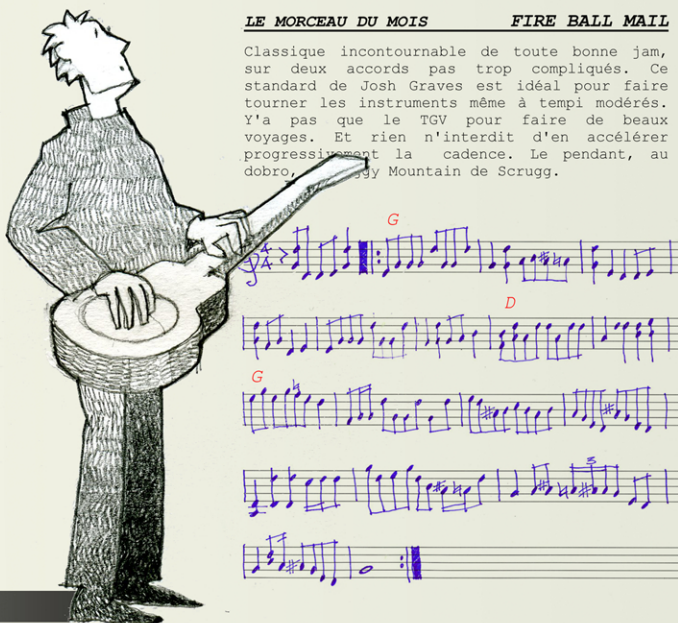 LE MORCEAU DU MOIS FIRE BALL MAIL
Classique incontournable de toute bonne jam,
sur deux accords pas trop compliqués. Ce
standard de Josh Graves est idéal pour faire
tourner les instruments même à tempi modérés.
Y'a pas que le TGV pour faire de beaux
voyages. Et rien n'interdit d'en accélérer
progressivement la cadence. Le pendant, au
dobro, Mountain de Scrugg.
G
4
4
D
G
3